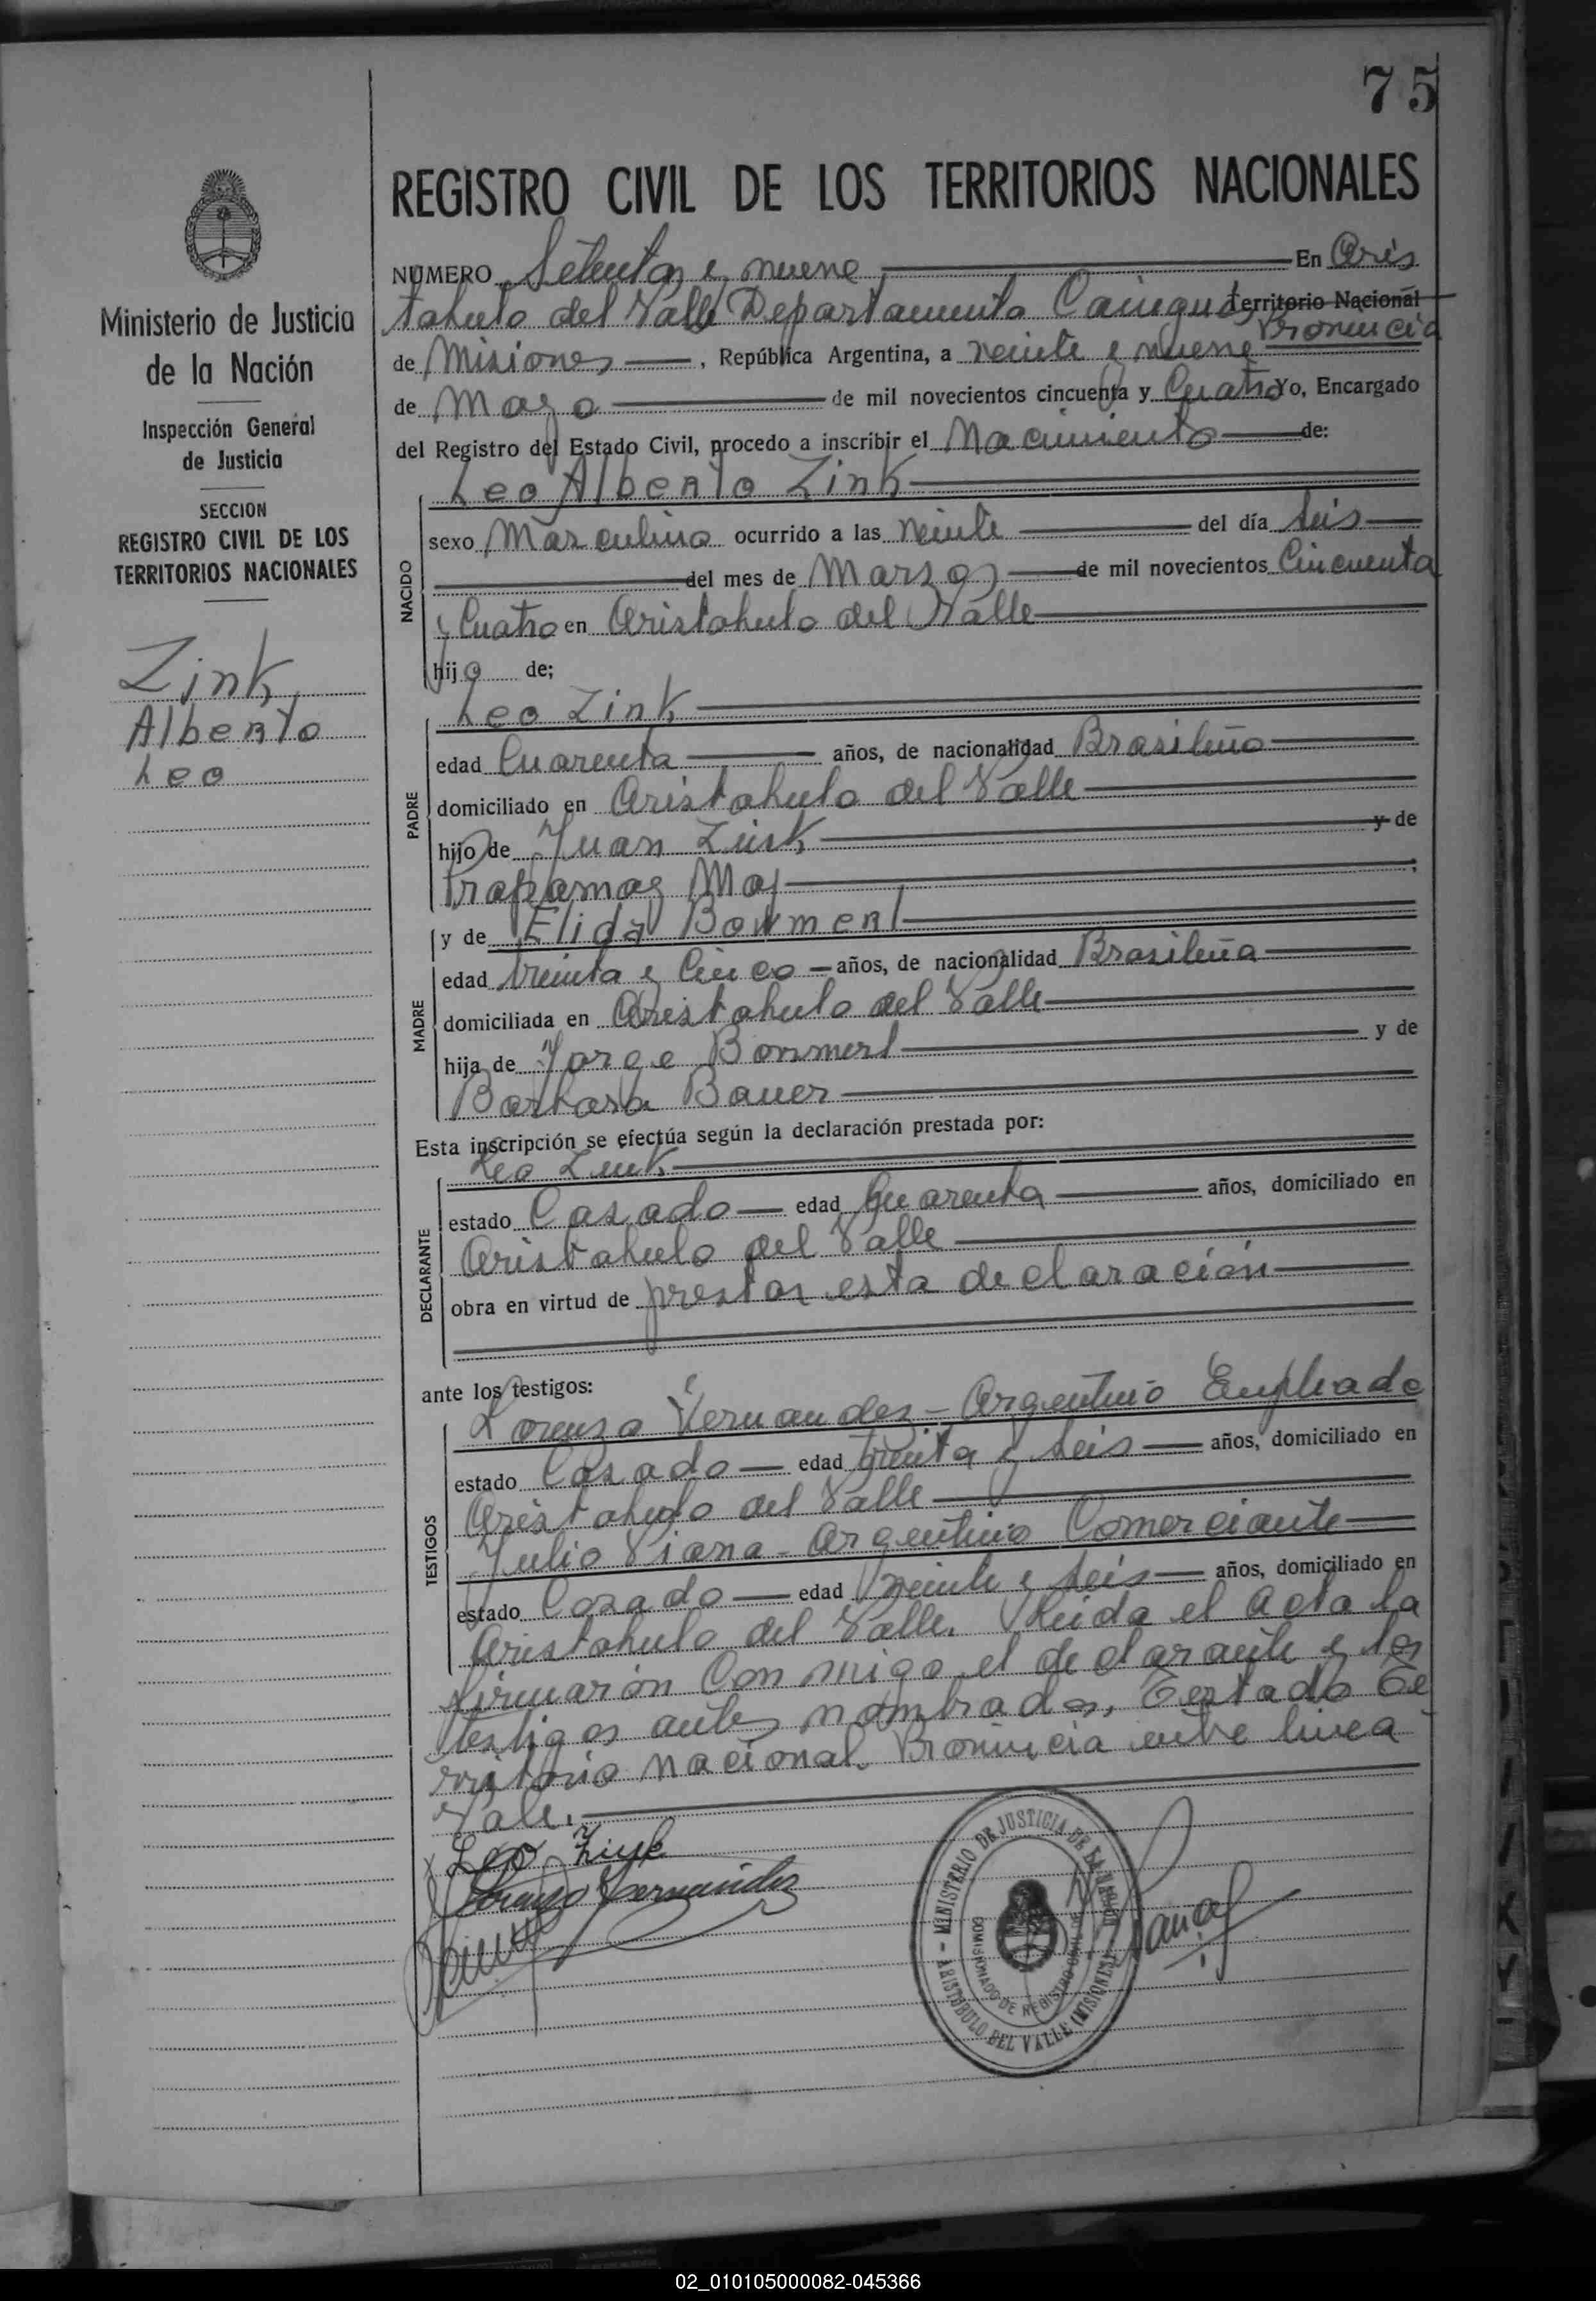 75
REGISTRO CIVIL DE LOS TERRITORIOS NACIONALES
Ministerio de Justicia
de la Nación
Inspección General
de Justicia
SECCION
REGISTRO CIVIL DE LOS
TERRITORIOS NACIONALES
Zink
Alberto
Leo
NUMERO Setenta y nueve En Aris
tobulo del Valle Departamento Cainguas Territorio Nacional
Provincia
de Misiones, República Argentina, a veinte y nueve
de Mayo de mil novecientos cincuenta y Cuatro Yo, Encargado
del Registro del Estado Civil, procedo a inscribir el Nacimiento de:
Leo Alberto Zink
NACIDO
sexo Masculino ocurrido a las veinte del día seis
del mes de Marzo de mil novecientos Cincuenta
y Cuatro en Aristobulo del Valle
hijo de;
PADRE
Leo Zink
edad Cuarenta años, de nacionalidad Brasileño
domiciliado en Aristobulo del Valle
hijo de Juan Zink y de
May
MADRE
y de Elida
edad treinta y Cinco años, de nacionalidad Brasileña
domiciliada en Aristobulo del Valle
hija de Jorge y de
Barbara Bauer
Esta inscripción se efectúa según la declaración prestada por:
DECLARANTE
Leo Zink
estado Casado edad Cuarenta años, domiciliado en
Aristobulo del Valle
obra en virtud de prestar esta declaración
ante los testigos:
TESTIGOS
Lorenzo Fernandez - Argentino Empleado
estado Casado edad treinta y seis años, domiciliado en
Aristobulo del Valle
Julio Viana - Argentino Comerciante
estado Casado edad veinte y seis años, domiciliado en
Aristobulo del Valle. Leida el acta la
firmarón Con migo el declarante y los
testigos antes nombrados, Testado Te
rritorio nacional. Provincia entre linea
Vale.
Leo Zink
Lorenzo Fernandez
MINISTERIO DE JUSTICIA DE LA NACION
COMISIONADO DE REGISTRO CIVIL
ARISTOBULO DEL VALLE (MISIONES)
02_010105000082-045366